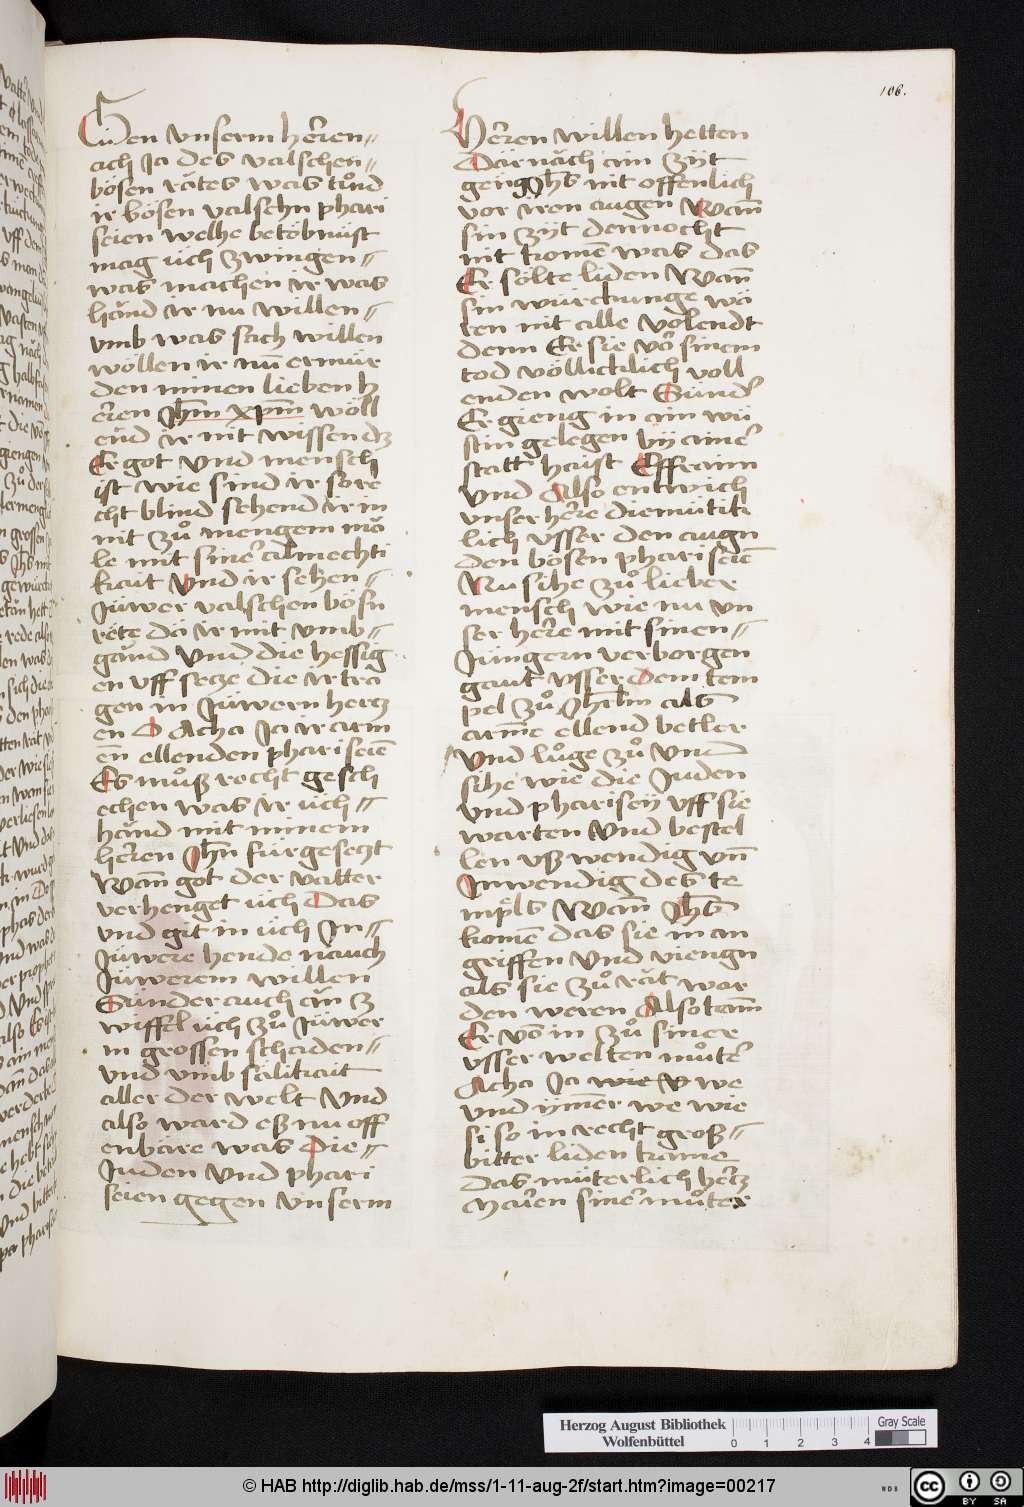 106.
Tuen vnserm herren
ach Ja des valschen
bösen rätes was tůnd
ir bösen valschn phari
seien welhe betöbnüst
mag üch zwingen
was machen ir was
händ ir nu willen
vmb was sach willen
wöllen ir nun ermür
den minen lieben h
erren Jhm xpm wöll
end ir nit wissen dz
Er got vnd mensch
ist wie sind ir so re
cht blind sehend ir in
nit zů mengem mä
le mit siner almechti
kait Vnd ir sehen
Jüwer valschen bösn
räte dä ir mit vmb
gänd vnd die hessig
en vff secze die ir tra
gen in Jüwern hercz
en O Acha Ja ir arm
en ellenden phariseie
Es můß recht gesch
echen was ir üch
händ mit minem
herren Jhn für geseczt
Wann got der vatter
verhenget üch Das
vnd git in üch Jn
Jüwere hende nauch
Jüwerem willen
Sünder auch ain z
wiffel üch zů Jüwer
m grossen schaden
vnd vmb sälikait
aller der welt vnd
also ward eß nu off
enbäre was Die
Juden vnd phari
seien gegen vnserm
Herren willen hetten
Där näch ain zyt
geng Jhs nit offenlich
vor iren augen Wann
sin zyt dennocht
nit komen was das
Er sölte liden Wann
sin würckunge wö
ren nit alle volendt
denn Er sie vor sinem
tod völlicklich voll
enden wolt Sünder
Er gieng in ain wü
stin gelegen by ainer
statt haist Effraim
vnd Also entwich
vnser herre diemütik
lich vsser den augn
den bösen phariseie
Nu sihe zů lieber
mensch wie nu vn
ser herre mit sinen
Jüngern verborgen
gaut vsser Dem tem
pel zů Jhrlm als
arme ellend betler
vnd lůge zů vnd
sihe wie die Juden
vnd pharisey vff sie
warten vnd bestel
len vßwendig vnd
Jnwendig des te
mpels Wann Jhs
komen das sie in an
griffen vnd viengn
als sie zů rät wor
den weren Also kam
Er von in zů siner
vsser welten můter
Acha Ja wie v we
vnd ymer we wie
si so in recht groß
bitter liden kame
das müterlich hercz
Maren siner můter
Herzog August Bibliothek
Wolfenbüttel
0 1 2 3 4
Gray Scale
© HAB http://diglib.hab.de/mss/1-11-aug-2f/start.htm?image=00217
WDB
cc BY SA